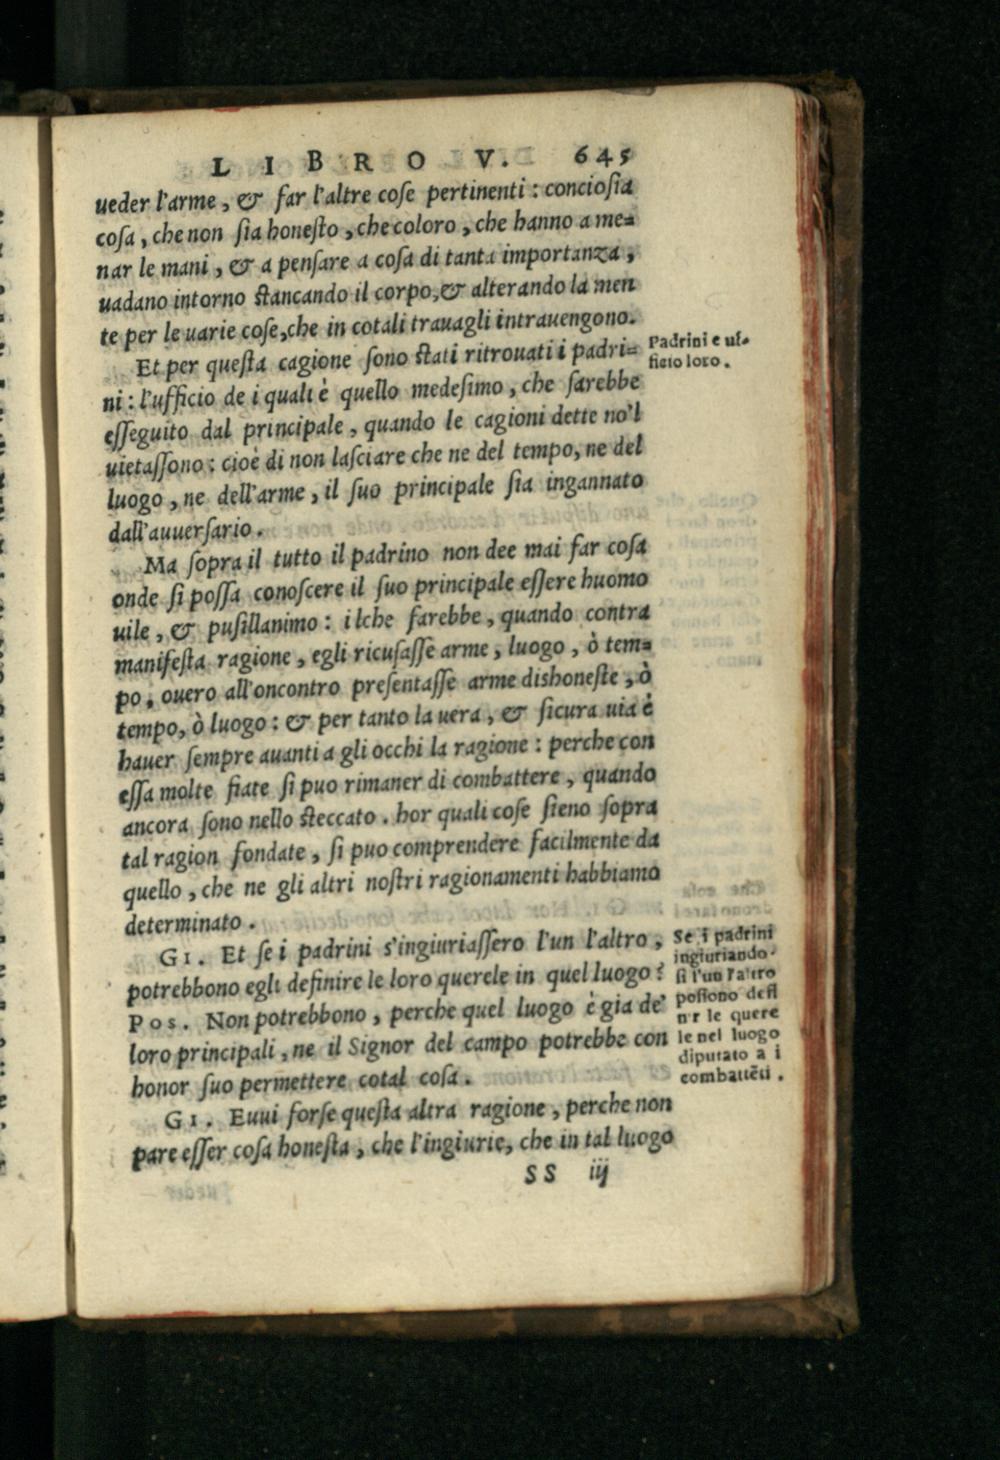 LIBRO V. 645
ueder l'arme, & far l'altre cose pertinenti: conciosia
cosa, che non sia honesto, che coloro, che hanno a me=
nar le mani, & a pensare a cosa di tanta importanza,
uadano intorno stancando il corpo, & alterando la men
te per le uarie cose, che in cotali trauagli intrauengono.
Et per questa cagione sono stati ritrouati i padri=
ni: l'ufficio de i quali è quello medesimo, che sarebbe
esseguito dal principale, quando le cagioni dette no'l
uietassono: cioè di non lasciare che ne del tempo, ne del
luogo, ne dell'arme, il suo principale sia ingannato
dall'auuersario.
Padrini e uf-
ficio loro.
Ma sopra il tutto il padrino non dee mai far cosa
onde si possa conoscere il suo principale essere huomo
uile, & pusillanimo: ilche farebbe, quando contra
manifesta ragione, egli ricusasse arme, luogo, ò tem=
po, ouero all'oncontro presentasse arme dishoneste, ò
tempo, ò luogo: & per tanto la uera, & sicura uia è
hauer sempre auanti a gli occhi la ragione: perche con
essa molte fiate si puo rimaner di combattere, quando
ancora sono nello steccato. hor quali cose sieno sopra
tal ragion fondate, si puo comprendere facilmente da
quello, che ne gli altri nostri ragionamenti habbiamo
determinato.
GI. Et se i padrini s'ingiuriassero l'un l'altro,
potrebbono egli definire le loro querele in quel luogo?
POS. Non potrebbono, perche quel luogo è gia de'
loro principali, ne il Signor del campo potrebbe con
honor suo permettere cotal cosa.
Se i padrini
ingiuriando-
si l'un l'altro
possono defi
nir le quere
le nel luogo
diputato a i
combattẽti.
GI. Euui forse questa altra ragione, perche non
pare esser cosa honesta, che l'ingiurie, che in tal luogo
SS iij